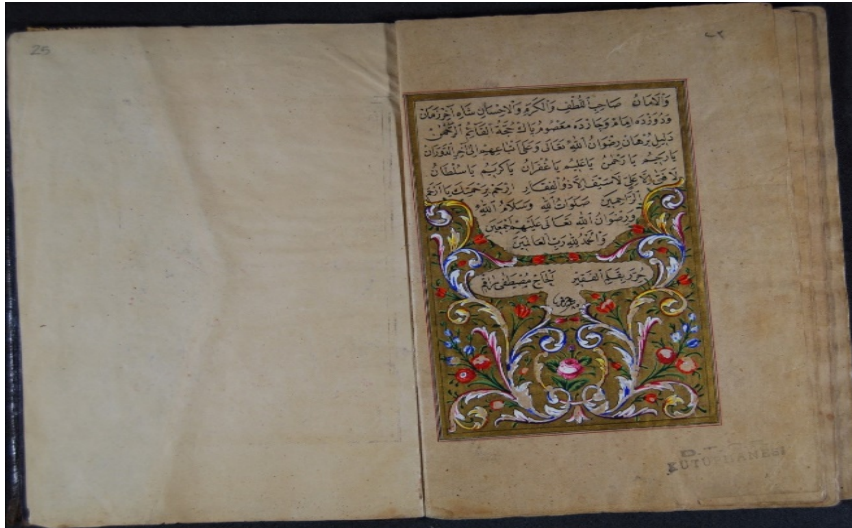 25
وَالْاَمَانُ صَاحِبُ اللُّطْفِ وَالْكَرَمِ وَالْاِحْسَانِ شَاهِ آخِرْ زَمَانْ
وَدُوَزْدَه اِمَامْ وَچَارْدَه مَعْصُومِ پَاكْ حُجَّةُ الْقَائِمُ الرَّحْمٰنْ
دَلِيلِ بُرْهَانْ رِضْوَانُ اللّٰهِ تَعَالٰى وَعَلٰى اَتْبَاعِهِمْ اِلٰى آخِرِ الدَّوْرَانْ
يَا رَحِيمُ يَا رَحْمٰنُ يَا عَلِيمُ يَا غُفْرَانُ يَا كَرِيمُ يَا سُلْطَانُ
لَا فَتٰى اِلَّا عَلِيّ لَا سَيْفَ اِلَّا ذُو الْفِقَارِ اِرْحَمْ بِرَحْمَتِكَ يَا اَرْحَمَ
الرَّاحِمِينَ صَلَوَاتُ اللّٰهِ وَسَلَامُ اللّٰهِ
وَرِضْوَانُ اللّٰهِ تَعَالٰى عَلَيْهِمْ اَجْمَعِينَ
وَالْحَمْدُ لِلّٰهِ رَبِّ الْعَالَمِينَ
بِقَلَمِ الْفَقِيرِ الْحَاجْ مُصْطَفٰى
KÜTÜPHANESİ